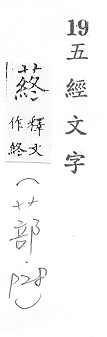 19五經文字
蔠
釋文
作終
(艹部·p28)